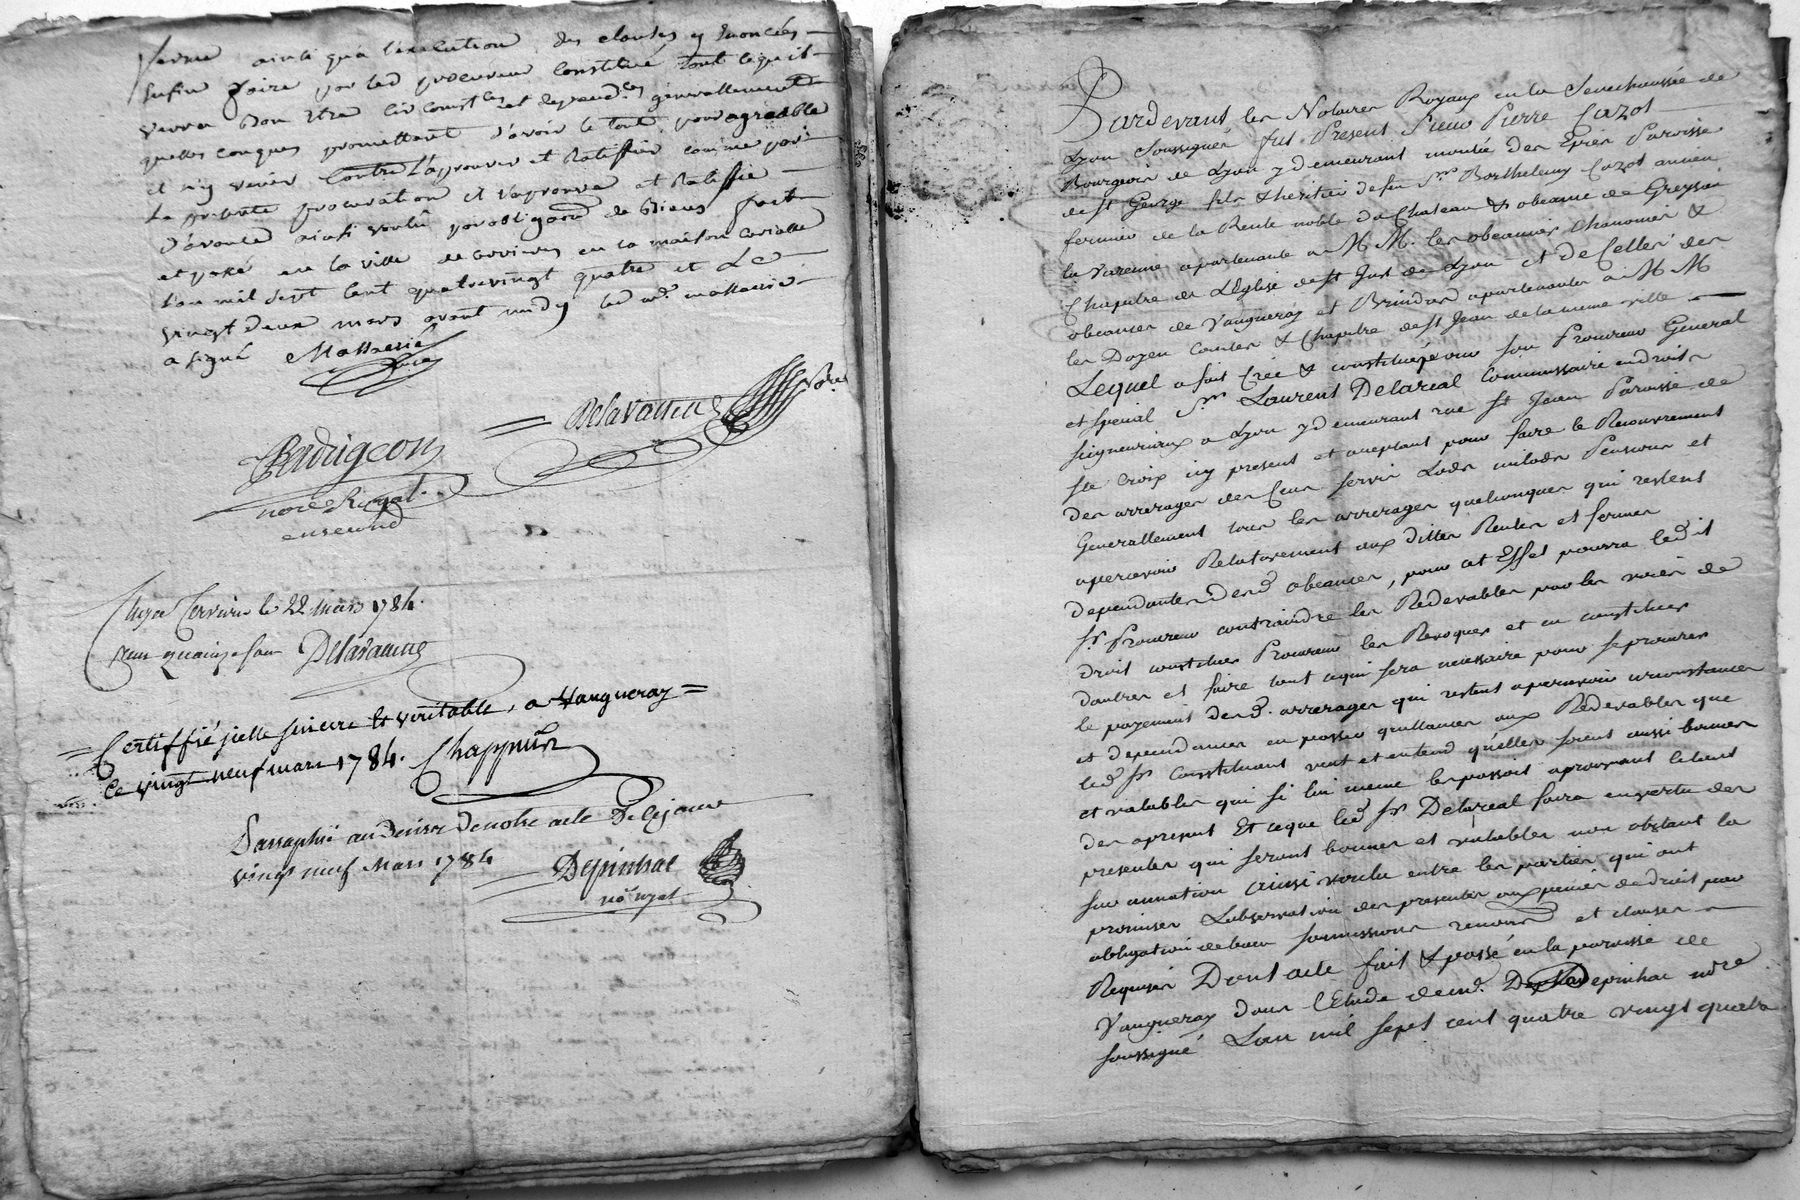 ferme ainsi qua l'execution des clauses y enoncées
enfin faire par led procureur constitué tout ce qu'il
verra bon etre circonst.ces et dependces generallement
quelles conques promettant d'avoir le tout pour agreable
et n'y venir contre l'aprouver et Ratiffier comme par
la presente procuration il l'aprouve et Ratiffie
ainsi voulu par obligaon de Biens fait
et passé en la ville de cerviere en la maison curialle
l'an mil sept cent quatrevingt quatre et Le
vingt deux mars avant midy led
a signé
Perdrigeon
nore Royal
en second
Cerviere le 22 mars 1784.
reçu quinze sous
= Certiffié sincere & veritable, a Vaugneray =
Ce vingt neuf mars 1784. Chappuis
Parraphé au desir de notre acte De cejour
vingt neuf Mars 1784
Depinhac
no. royal
Pardevant les Notaires Royaux en la Senechaussée de
Lyon Soussignés fut Present Sieur Pierre Cazot
Bourgeois de Lyon y demeurant montée des Epies Paroisse
de St George fils & heritier de feu Sr. Barthelemy Cazot ancien
fermier de la Rente noble du Chateau & obeance de Greysieu
la Varenne apartenante a M M. les obeanciers Chanoines &
Chapitre de L'Eglise de St Just de Lyon et de Celles des
obeances de Vaugneray et Brindas apartenantes a M M
les Doyen Comtes & Chapitre de St Jean de la meme ville
Lequel a fait Créé & constitué pour son Procureur General
et special Sr. Laurent Delareal Commissaire en droits
seigneuriaux a Lyon y demeurant rue St Jean Paroisse de
Ste Croix icy present et aceptant pour faire le Recouvrement
des arrerages des Cens servis Lods milods Pensions et
Generallement tous les arrerages quelconques qui restent
a percevoir Relativement aux dittes Rentes et fermes
dependantes desd. obeances, pour cet Effet pourra ledit
Sr. Procureur contraindre les Redevables par les voies de
droit constituer Procureur les Revoquer et en constituer
dautres et faire tout ce qui sera necessaire pour se procurer
le payement desd. arrerages qui restent a percevoir circonstances
et dependances en passer quittances aux Redevables que
led. Sr. Constituant veut et entend qu'elles soient aussi bonnes
et valables que si lui meme les passoit aprouvant le tout
des apresent Et ce que led. Sr. Delareal faira en vertu des
presentes qui seront bonnes et valables non obstant la
sur annation ainsi voulu entre les parties qui ont
promises L'observation des presentes aux peines de droit par
obligation de biens soumissions renonons et clauses
Requises Dont acte fait & passé en la paroisse de
Vaugneray dans l'Etude de Me. Depinhac nore
soussigné Lan mil sept cent quatre vingt quatre